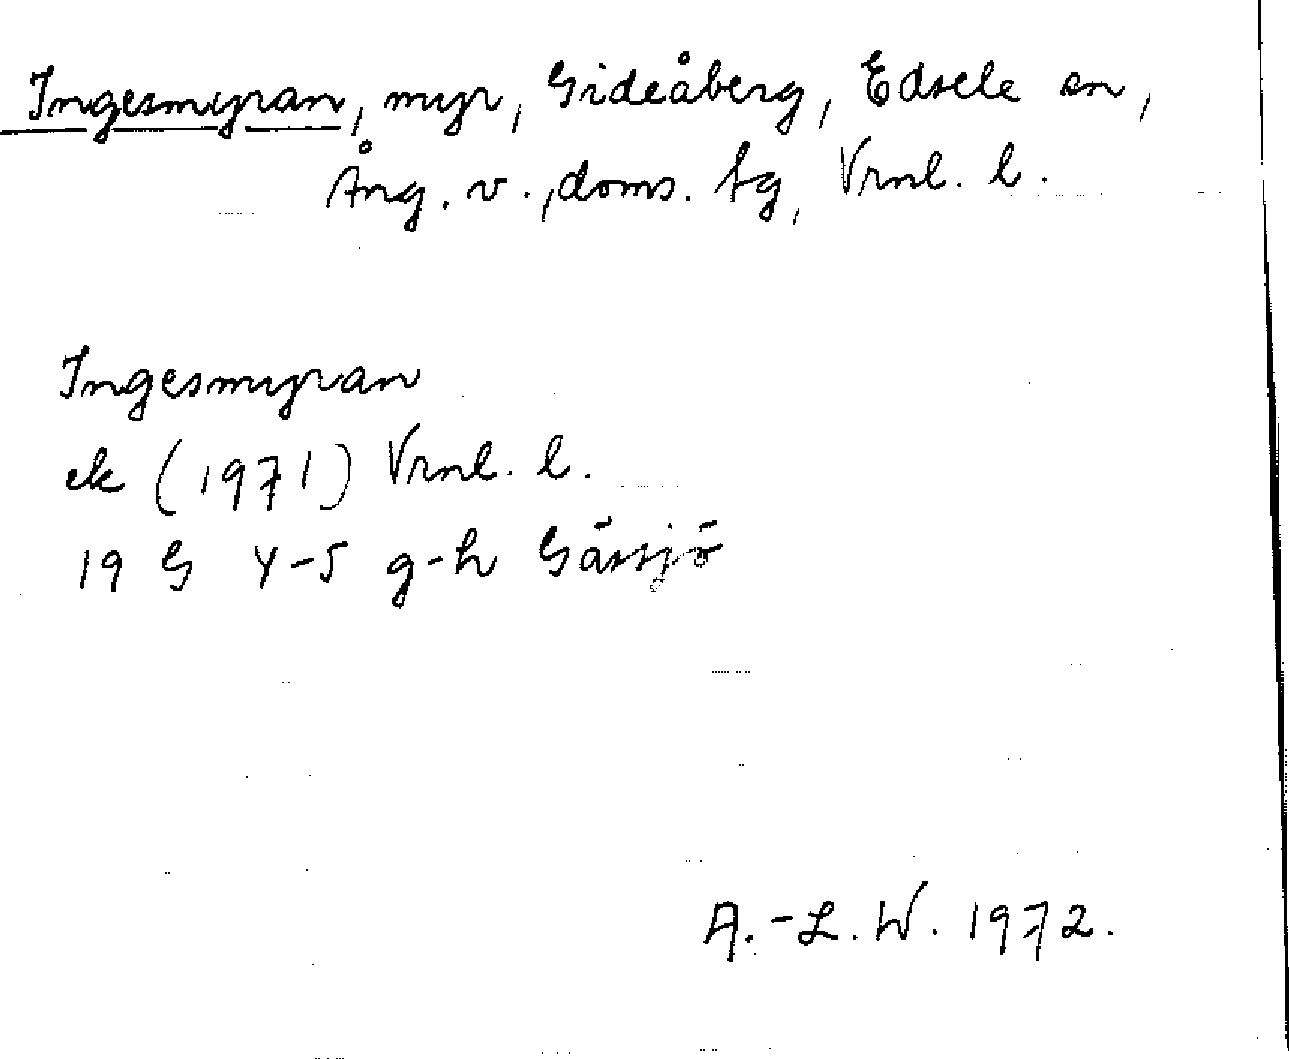 Ingesmyran, myr, Gideåberg, Edsele sn,
Ång. v., doms. tg, Vrnl. l.
Ingesmyran
ek (1971) Vrnl. l.
19 G 4-5 g-h Gässjö
A.-L. W. 1972.